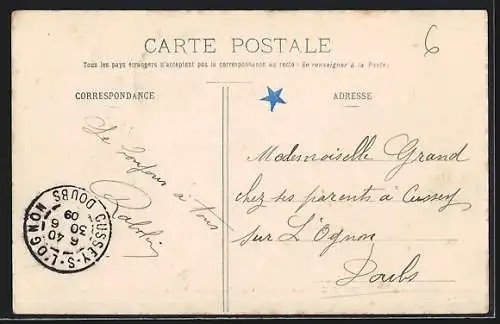 6
CARTE POSTALE
Tous les pays étrangers n'acceptent pas la correspondance au recto (Se renseigner à la Poste).
CORRESPONDANCE
ADRESSE
toujours à tous
Mademoiselle Grand
chez ses parents à Cussey
sur L'Ognon
Doubs
CUSSEY-S-L'OGNON
DOUBS
6 40
30
6
09